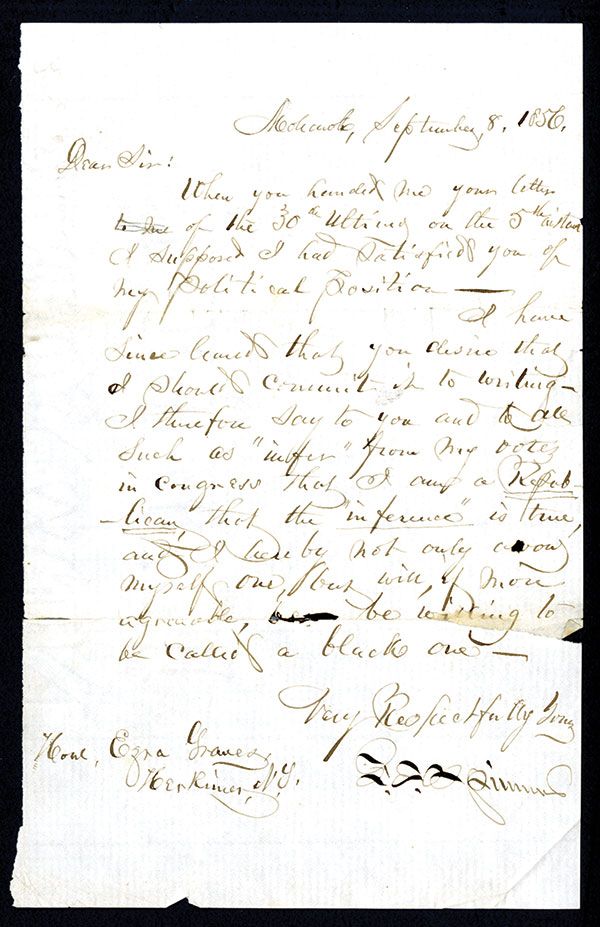 Mohawk, September, 8. 1856.
Dear Sir:
When you handed me your letter
to the of the 30th Ultimo on the 5th instant
I supposed I had satisfied you of
my Political Position —
I have
since learned that you desire that
I should commit it to writing –
I therefore say to you and to all
such as "infer" from my votes
in Congress that I am a Repub-
-lican, that the "inference" is true,
and I hereby not only avow
myself one, but will, if more
agreeable, be willing to
be called a black one –
Very Respectfully Yours
Honl, Ezra Graves,
Herkimer, N.Y.